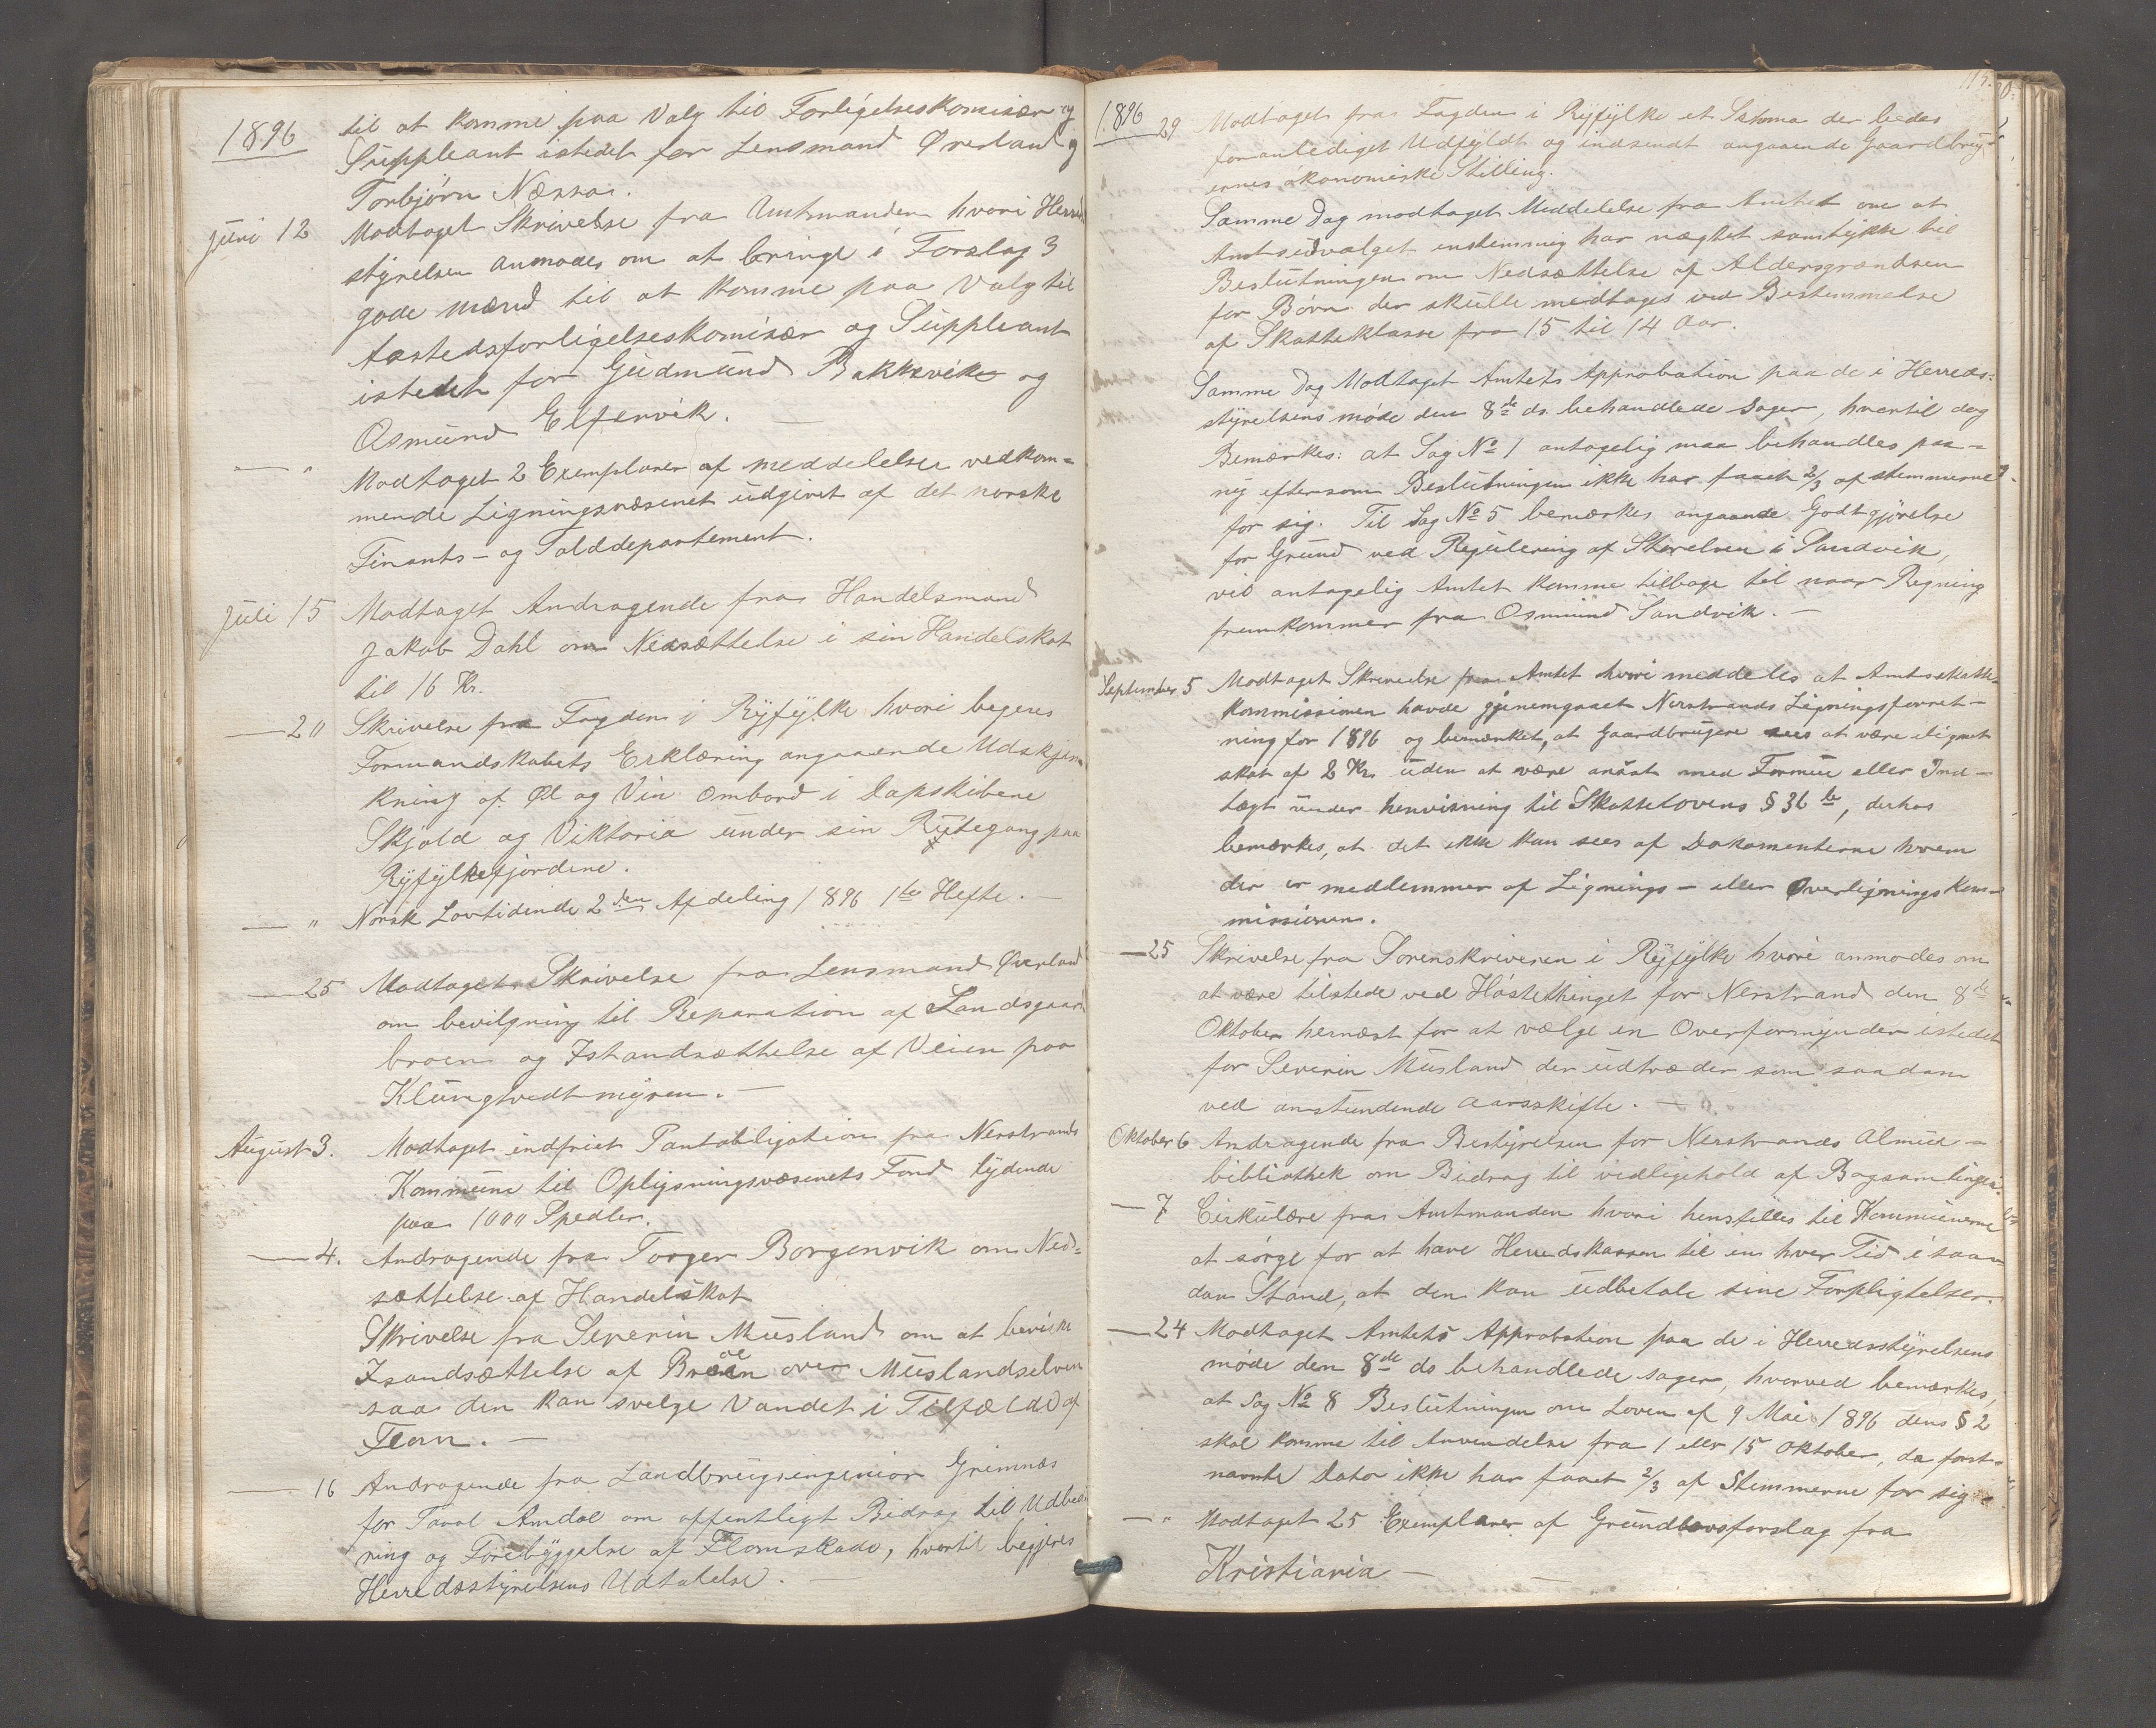 1896
til at komme paa Valg til Forligelseskomisær og
Suppleant istedet for Lensmand Øverland og
Torbjørn Næssa.
Juni 12 Modtaget Skrivelse fra Amtmanden hvori Herreds
styrelsen anmodes om at bringe i Forslag 3
gode mænd til at komme paa Valg til
Aastedsforligelseskomisær og Suppleant
istedet for Gudmund Bakkevik og
Osmund Elfervik.
— " Modtaget 2 Exemplarer af meddelelser vedkom=
mende Ligningsvæsenet udgivet af det norske
Finants- og Tolddepartement.
Juli 15 Modtaget Andragende fra Handelsmand
Jakob Dahl om Nedsættelse i sin Handelskat
til 16 Kr.
— 20 Skrivelse fra Fogden i Ryfylke hvori begeres
Formandskabets Erklæring angaaende Udskjæn
kning af Øl og Vin ombord i Dapskibene
Skjold og Viktoria under sin Rutegang paa
Ryfylkefjordene.
— " Norsk Lovtidende 2den Afdeling 1896 1ste Hefte. —
— 25 Modtaget Skrivelse fra Lensmand Øverland
om bevilgning til Reparation af Landsgaard
broen og Istandsættelse af Veien paa
Klungtvedtmyren. —
August 3. Modtaget indfriet Pantobligation fra Nerstrands
Kommune til Oplysningsvæsenets Fond lydende
paa 1000 Spedlr.
— 4. Andragende fra Torger Borgenvik om Ned=
sættelse af Handelskat
Skrivelse fra Severin Musland om at bevirke
Isandsættelse af Broen over Muslandselven
saa den kan svelge Vandet i Tilfælde af
Flom. —
— 16 Andragende fra Landbrugsingeniør Grimnæs
for Paval Amdal om offentligt Bidrag til Udbed
ring og Forebyggelse af Flomskade, hvortil begjæres
Herredsstyrelsens Udtalelse. —
1896 29 Modtaget fra Fogden i Ryfylke et Schema der bedes
foranlediget Udfyldt og indsendt angaaende Gaardbrug-
ernes økonomiske Stilling.
Samme Dag modtaget Meddelelse fra Amtet om at
Amtsudvalget enstemmig har nægtet samtykke til
Beslutningen om Nedsættelse af Aldersgrændsen
for Børn der skulle medtages ved Bestemmelse
af Skatteklasse fra 15 til 14 Aar.
Samme Dag Modtaget Amtets Approbation paa de i Herreds=
styrelsens møde den 8de ds. behandlede Sager, hvortil dog
Bemærkes: at Sag No 1 antagelig maa behandles paa-
ny eftersom Beslutningen ikke har faaet 2/3 af stemmerne
for sig. Til Sag No 5 bemærkes angaaende Godtgjørelse
for Grund ved Regulering af Storelven i Sandvik,
vil antagelig Amtet komme tilbage til naar Regning
fremkommer fra Osmund Sandvik. —
September 5 Modtaget Skrivelse fra Amtet hvori meddeles at Amtsskatte-
kommissionen havde gjenemgaaet Nerstrands Ligningsforret-
ning for 1896 og bemærket, at Gaardbrugere sees at være ilignet
skat af 2 Kr. uden at være ansat med Formue eller Ind-
tægt under henvisning til Skattelovens § 36 , derhos
bemærkes, at det ikke kan sees af Dokumenterne hvem
der er medlemmer af Lignings- eller Overligningskom-
missionen.
— 25 Skrivelse fra Sorenskriveren i Ryfylke hvori anmodes om
at være tilstede ved Høstethinget for Nerstrand den 8de
Oktober hernæst for at vælge en Overformynder istedet
for Severin Musland der udtræder som saadan
ved anstundende Aarsskifte. —
Oktober 6 Andragende fra Bestyrelsen for Nerstrands Almue-
bibliothek om Bidrag til vedligehold af Bogsamlingen.
— 7 Cirkulære fra Amtmanden hvori henstilles til Kommunerne
at sørge for at have Herredskassen til en hver Tid i saa-
dan Stand, at den kan udbetale sine Forpligtelser.
— 24 Modtaget Amtets Approbation paa de i Herredsstyrelsens
møde den 8de ds behandlede sager, hvorved bemærkes,
at Sag No 8 Beslutningen om Loven af 9 Mai 1896 dens § 2
skal komme til Anvendelse fra 1 eller 15 Oktober, da først-
nævnte Dato ikke har faaet 2/3 af Stemmerne for sig
— " Modtaget 25 Exemplarer af Grundlovsforslag fra
Kristiania —